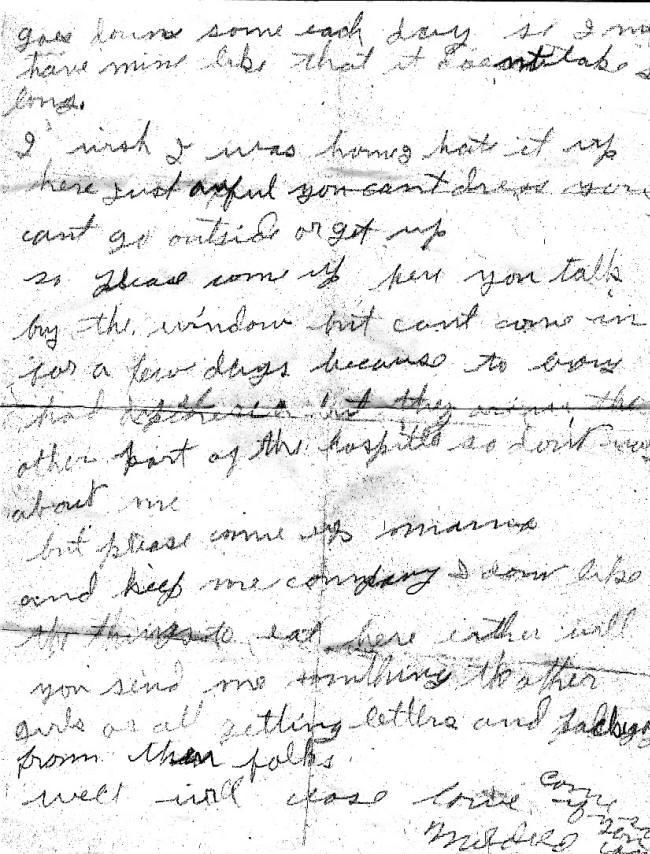 goes down some each day so I
have mine like that it doesnt take
long.
I wish I was home I hate it up
here just awful you cant dress you
cant go outside or get up
so please come up here you talk
by the window but cant come in
for a few days because to boys
had but they are in the
other part of the hospitle so dont
about me
but please come up mama
and keep me company I dont like
the things to eat here either will
you send me somthing the other
girls or all getting letters and
from their folks
well will close love
Mildred
come